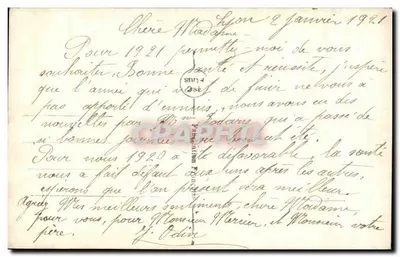 Lyon 2 janvier 1921
Chère Madame
Pour 1921 permettez-moi de vous
souhaiter, Bonne santé et réussite, j'espère
que l'année qui vient de finir ne vous a
pas apporté d'ennuis, nous avons eu des
nouvelles par qui a passé de
si bonnes journées cet été.
Pour nous 1920 a été défavorable, la santé
nous a fait défaut aux uns après les autres,
espérons que l'an présent sera meilleur.
Agréez mes meilleurs sentiments, chère Madame,
pour vous, pour Monsieur Mercier, et Monsieur votre
père.